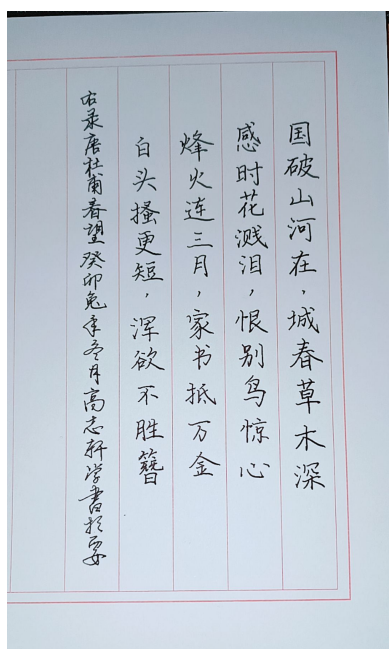 国破山河在，城春草木深
感时花溅泪，恨别鸟惊心
烽火连三月，家书抵万金
白头搔更短，浑欲不胜簪
右录唐杜甫春望癸卯兔年冬月高志轩学書於